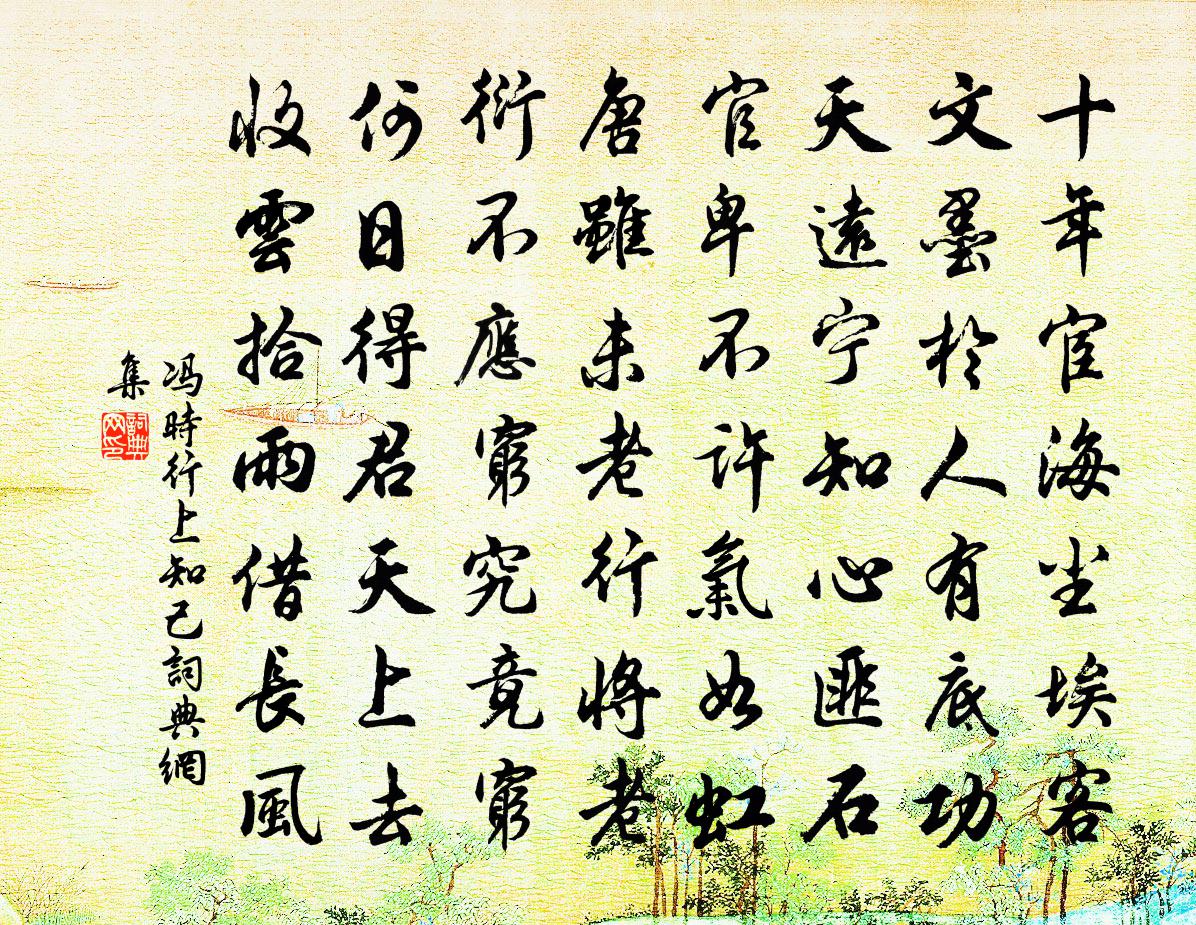 十年宦海尘埃客
文墨於人有底功
天遠宁知心匪石
官卑不许氣如虹
唐雖未老行將老
衍不應窮究竟窮
何日得君天上去
收雲拾雨借長風
冯時行上知己詞典網
集
詞典网印